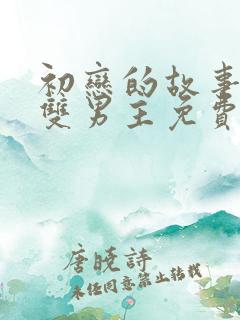 初戀的故事
雙男主免費
唐曉詩
未經同意禁止轉載